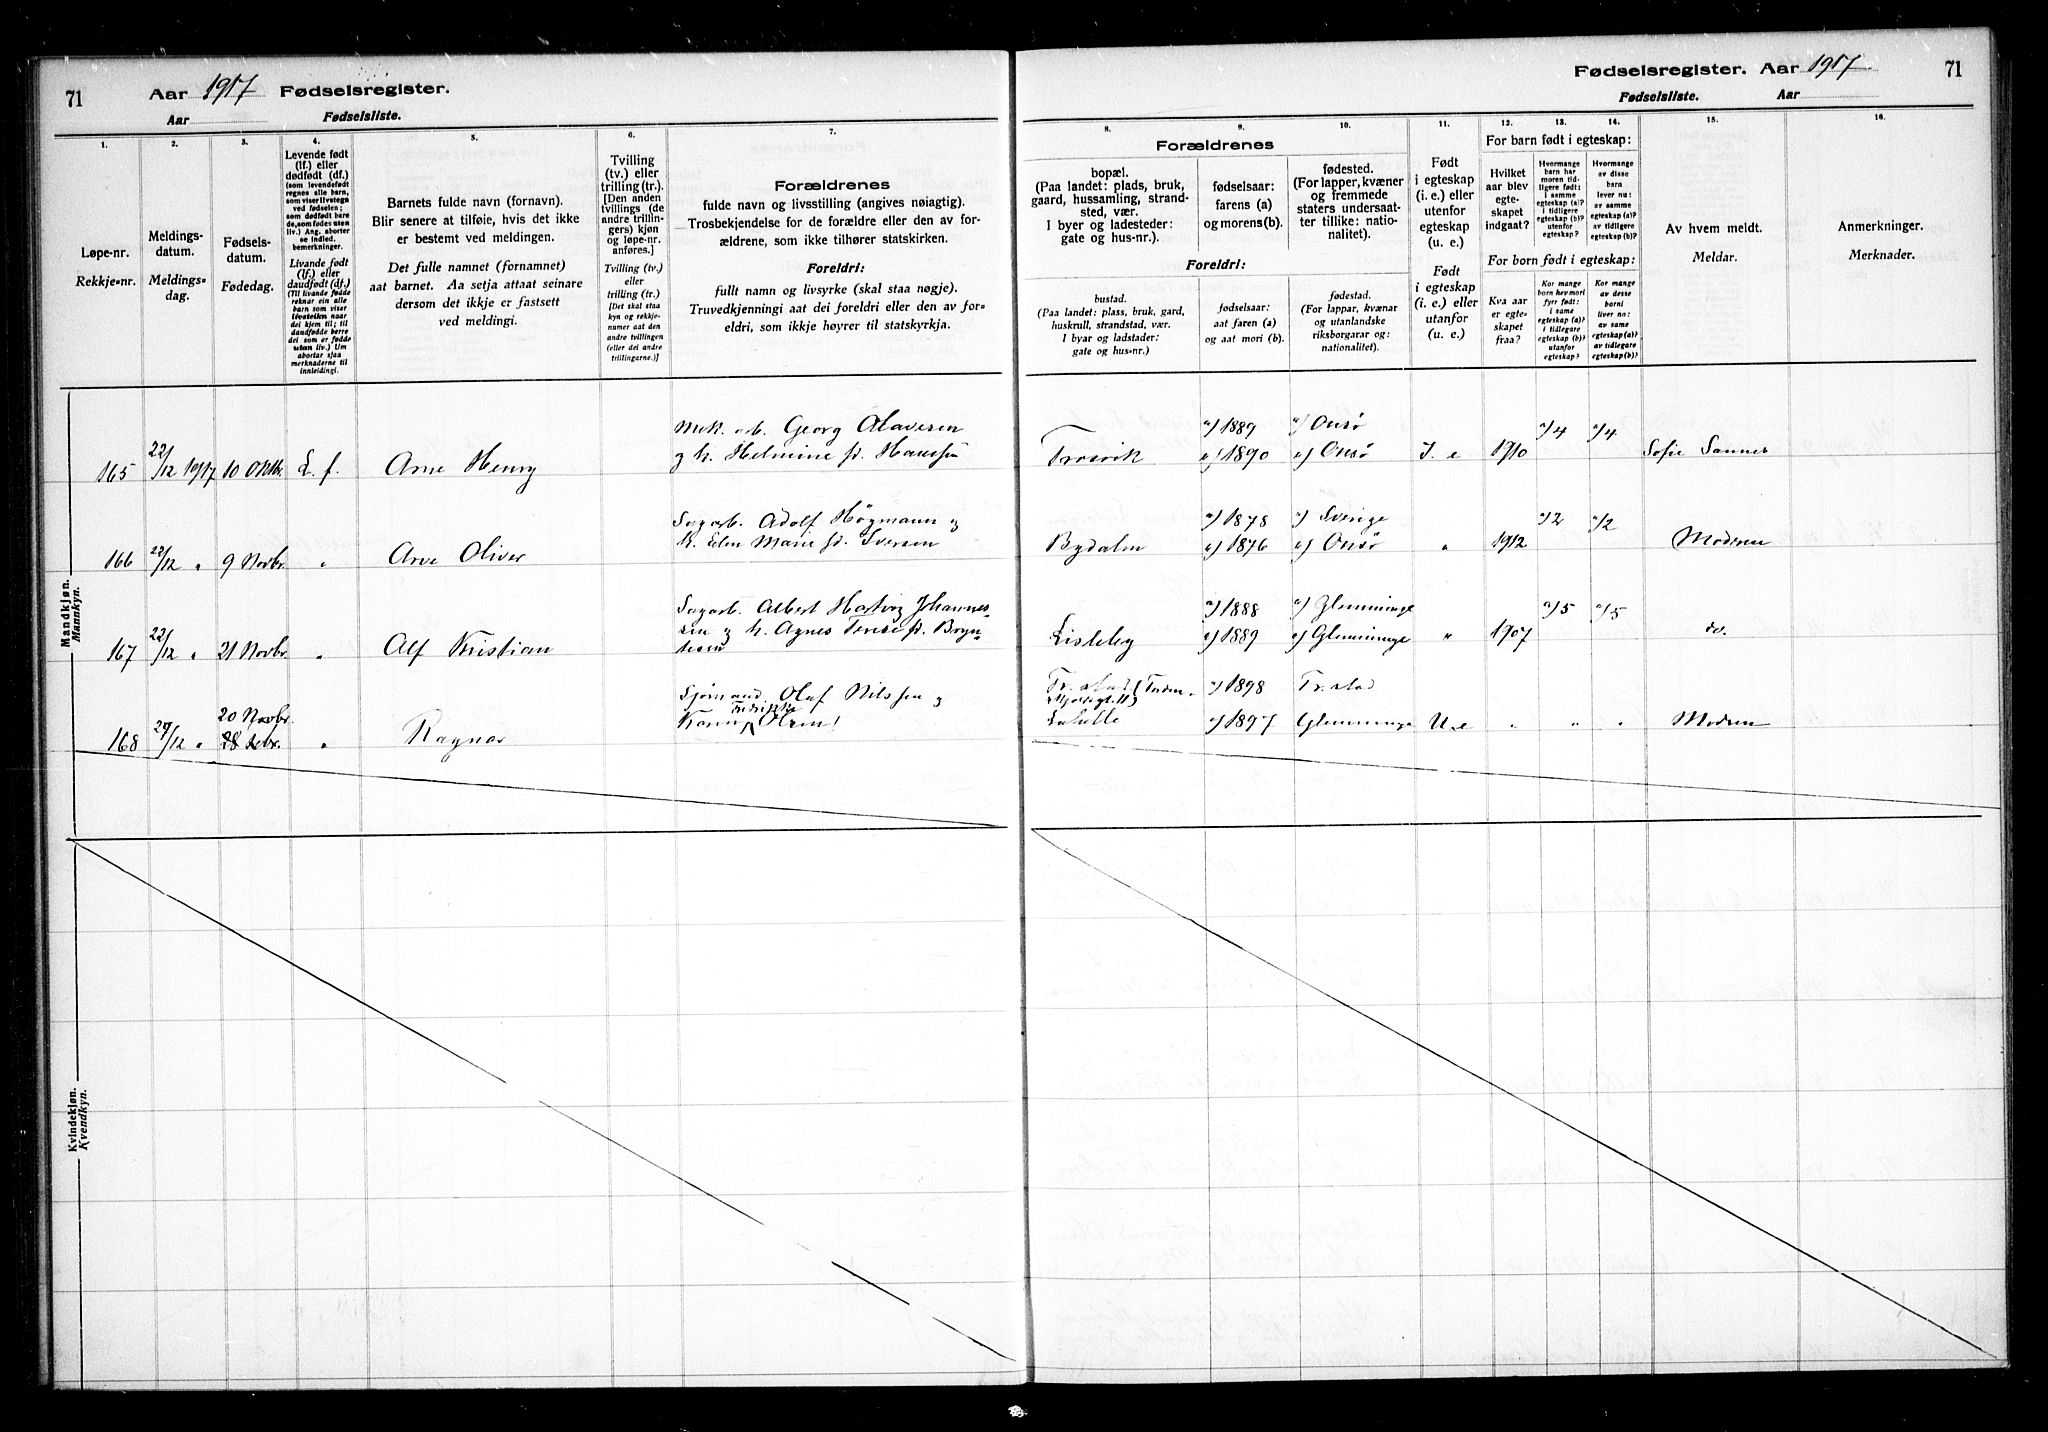 71 Aar 1917 Fødselsregister.
Aar Fødselsliste.
Fødselsregister. Aar 1917 71
Fødselsliste. Aar
1.
Løpe-nr.
Rekkje-nr.
2.
Meldings-
datum.
Meldings-
dag.
3.
Fødsels-
datum.
Fødedag.
4.
Levende født
(lf.) eller
dødfødt (df.)
(som levendefødt
regnes alle barn,
som viser livstegn
ved fødselen;
som dødfødt bare
de, som fødes uten
liv.) Ang. aborter
se indled.
bemerkninger.
Livande født
(lf.) eller
daudfødt (df.)
(Til livande fødde
reknar ein alle
born som viser
livsteikn naar
dei kjem til; til
daudfødde berre
dei som er fødde
utan liv.) Um
abortar sjaa
merknaderne til
innleidingi.
5.
Barnets fulde navn (fornavn).
Blir senere at tilføie, hvis det ikke
er bestemt ved meldingen.
Det fulle namnet (fornamnet)
aat barnet. Aa setja attaat seinare
dersom det ikkje er fastsett
ved meldingi.
6.
Tvilling
(tv.) eller
trilling (tr.).
[Den anden
tvillings (de
andre trillin-
gers) kjøn
og løpe-nr.
anføres.]
Tvilling (tv.)
eller
trilling (tr.)
[Det skal staa
kyn og rekkje-
numer aat den
andre tvillingen
(eller dei andre
trillingarne.)]
7.
Forældrenes
fulde navn og livsstilling (angives nøiagtig).
Trosbekjendelse for de forældre eller den av for-
ældrene, som ikke tilhører statskirken.
Foreldri:
fullt namn og livsyrke (skal staa nøgje).
Truvedkjenningi aat dei foreldri eller den av for-
eldri, som ikkje høyrer til statskyrkja.
Forældrenes
8.
bopæl.
(Paa landet: plads, bruk,
gaard, hussamling, strand-
sted, vær.
I byer og ladesteder:
gate og hus-nr.).
9.
fødselsaar:
farens (a)
og morens (b).
10.
fødested.
(For lapper, kvæner
og fremmede
staters undersaat-
ter tillike: natio-
nalitet).
Foreldri:
bustad.
(Paa landet: plass, bruk, gard,
huskrull, strandstad, vær.
I byar og ladstader:
gate og hus-nr.)
fødselsaar:
aat faren (a)
og aat mori (b).
fødestad.
(For lappar, kvænar
og utanlandske
riksborgarar og:
nationalitet).
11.
Født
i egteskap
(i. e.) eller
utenfor
egteskap
(u. e.)
Født
i egteskap
(i. e.) eller
utanfor
(u. e.)
12. 13. 14.
For barn født i egteskap:
Hvilket
aar blev
egte-
skapet
indgaat?
Hvormange
barn har
moren tid-
ligere født:
i samme
egteskap (a)?
i tidligere
egteskap (b)?
utenfor
egteskap?
Hvormange
av disse
barn
lever nu:
av samme
egteskap (a)?
av tidligere
egteskap (b)?
For born født i egteskap:
Kva aar
er egte-
skapet
fraa?
Kor mange
born hev mori
fyrr født:
i same
egteskap (a)?
i tidlegare
egteskap (b)?
utanfor
egteskap?
Kor mange
av desse
borni
liver no:
av same
egteskap (a)?
av tidlegare
egteskap (b)?
15.
Av hvem meldt.
Meldar.
16.
Anmerkninger.
Merknader.
Mandkjøn.
Mannkyn.
165 22/12 1917 10 Oktbr. L. f. Arne Henry
Mek. arb. Georg Olavesen
og h. Helmine fd. Hanssen
Trosvik a) 1889 b) 1890 a) Onsø b) Onsø I. e 1910 a/4 a/4 Sofie Sannes
166 22/12 " 9 Novbr. " Arve Oliver
Sagarb. Adolf Högmann og
h. Elen Marie fd. Iversen
Bydalen a) 1878 b) 1876 a) Sverige b) Onsø " 1912 a/2 a/2 Moderen
167 22/12 " 21 Novbr. " Alf Kristian
Sagarb. Albert Hartvig Johannes-
sen og h. Agnes Terese fd. Bryn-
Lisleby a) 1888 b) 1889 a) Glemminge b) Glemminge " 1907 a/5 a/5 do.
168 29/12 " 20 Novbr. " Ragnar
Sjömand Olaf Nilssen og
Karin Fredrikke Olsen!
Fr.stad
a) 1898 b) 1897 Fr.stad Glemminge U. e " " " Modren
Kvindekjøn.
Kvendkyn.